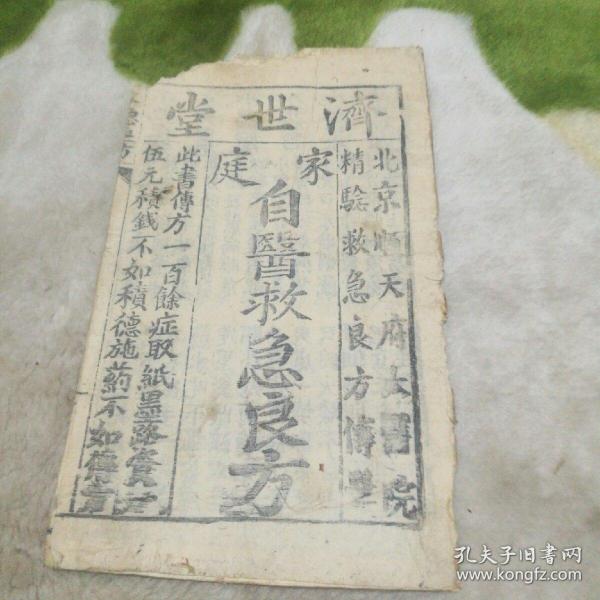 濟世堂
北京順天府太醫院
精驗救急良方傳世
家庭
自醫救急良方
此書傳方一百餘症取紙墨路資
伍元積錢不如積德施藥不如傳方
孔夫子旧书网
www.kongfz.com